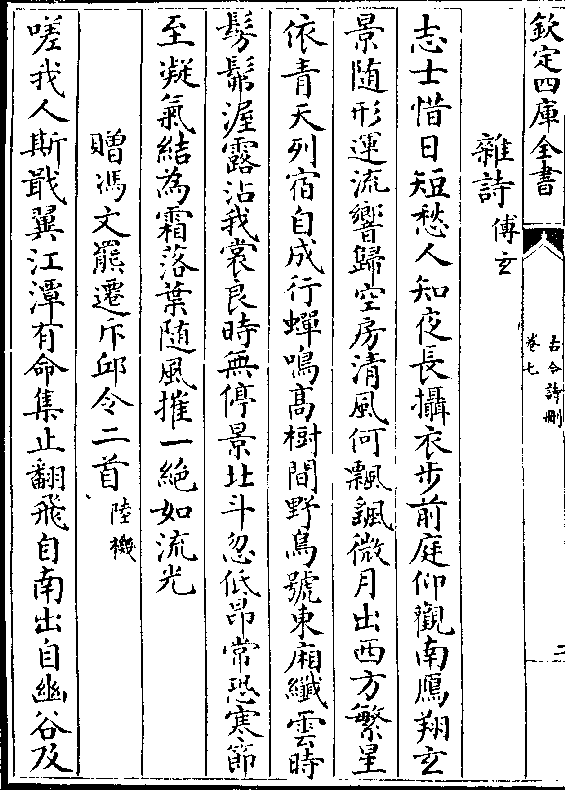 欽定四庫全書
古今詩刪
卷七
二
雜詩 傅玄
志士惜日短愁人知夜長攝衣步前庭仰觀南鴈翔玄
景随形運流響歸空房清風何飄颻微月出西方繁星
依青天列宿自成行蟬鳴髙樹間野鳥號東廂纎雲時
髣髴渥露沾我裳良時無停景北斗忽低昂常恐寒節
至凝氣結為霜落葉随風摧一絶如流光
贈馮文羆遷斥邱令二首 陸機
嗟我人斯戢翼江潭有命集止翻飛自南出自幽谷及